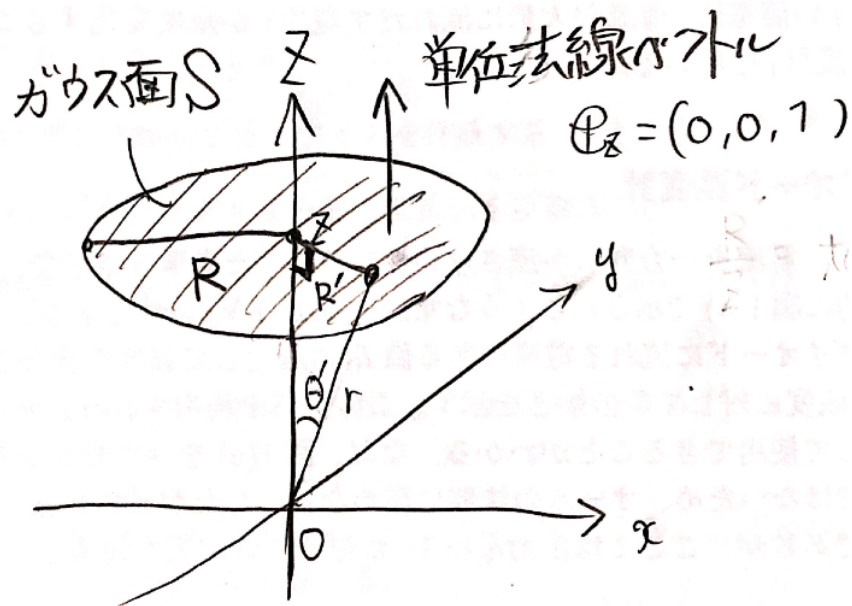 ガウス面S
Z
単位法線ベクトル
e_z = (0, 0, 1)
z
R
R'
y
θ'
r
O
x